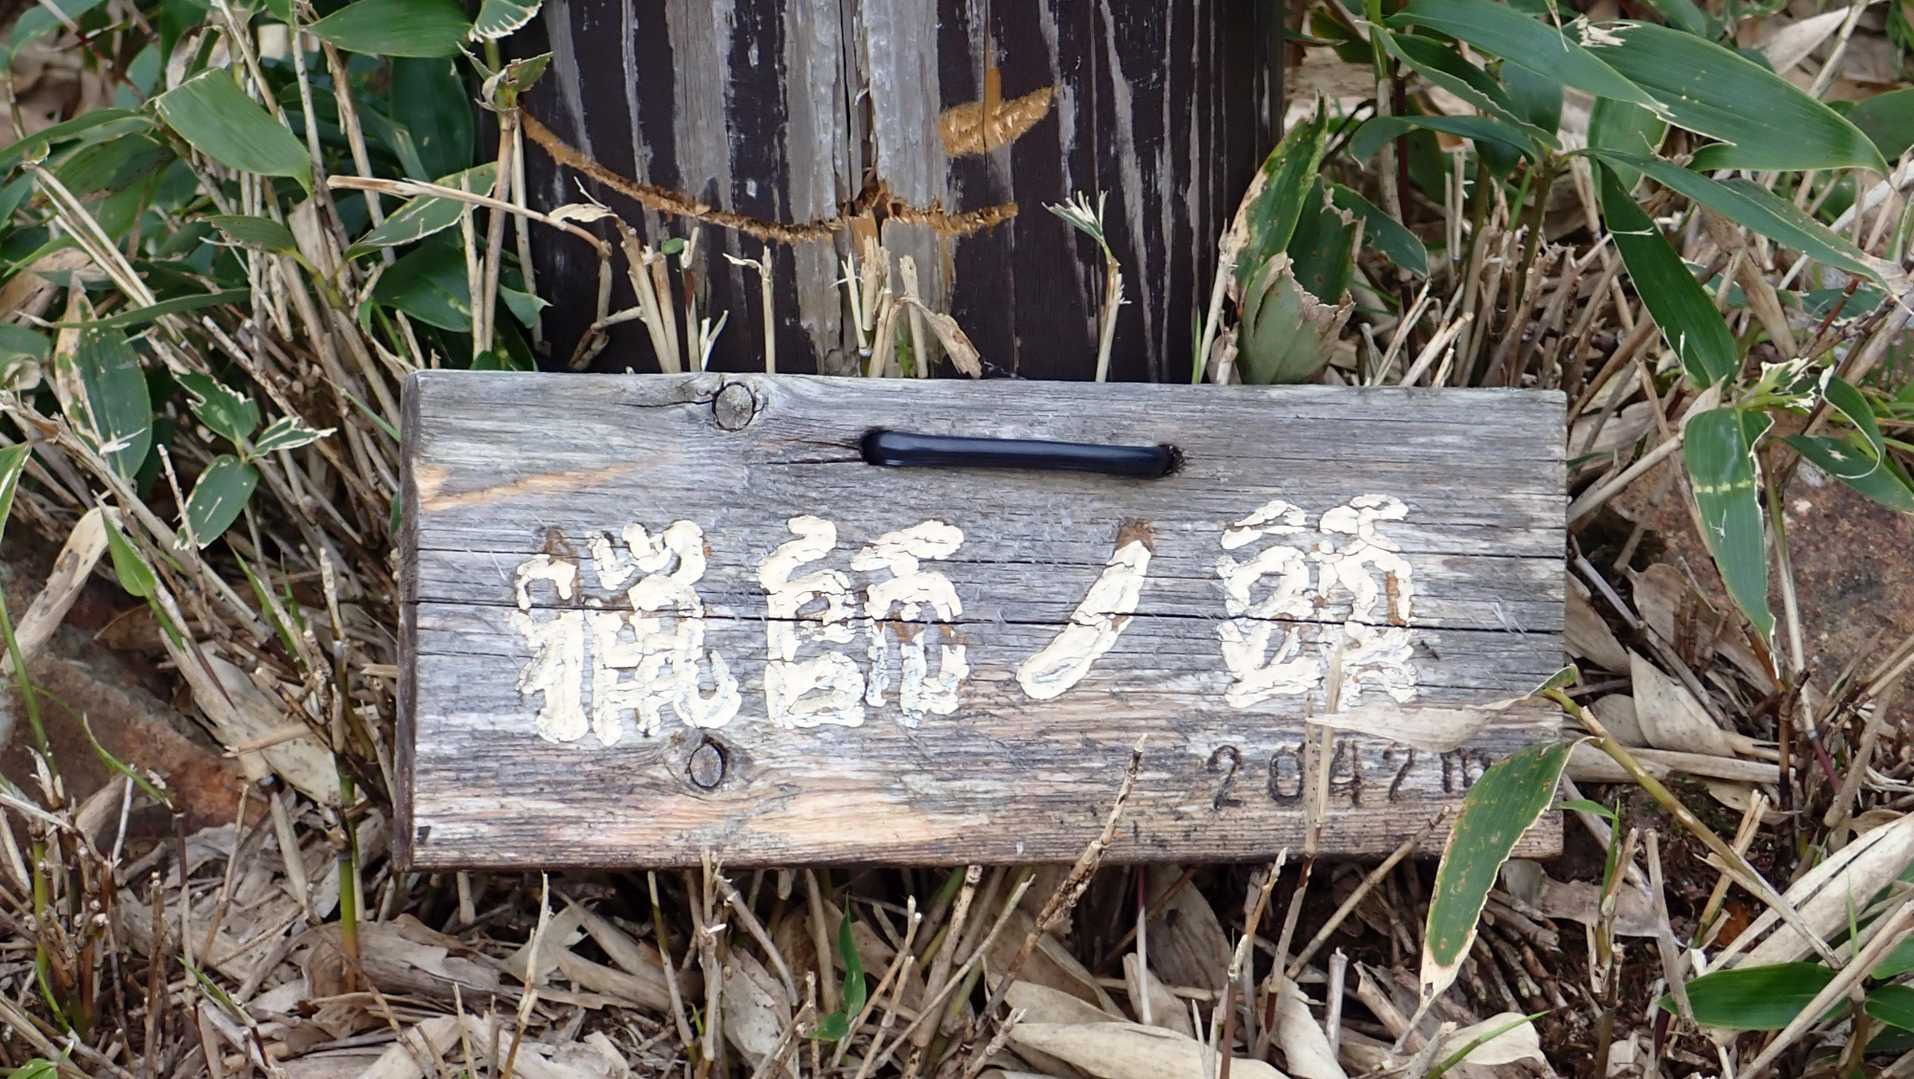 猟師ノ頭
2042m